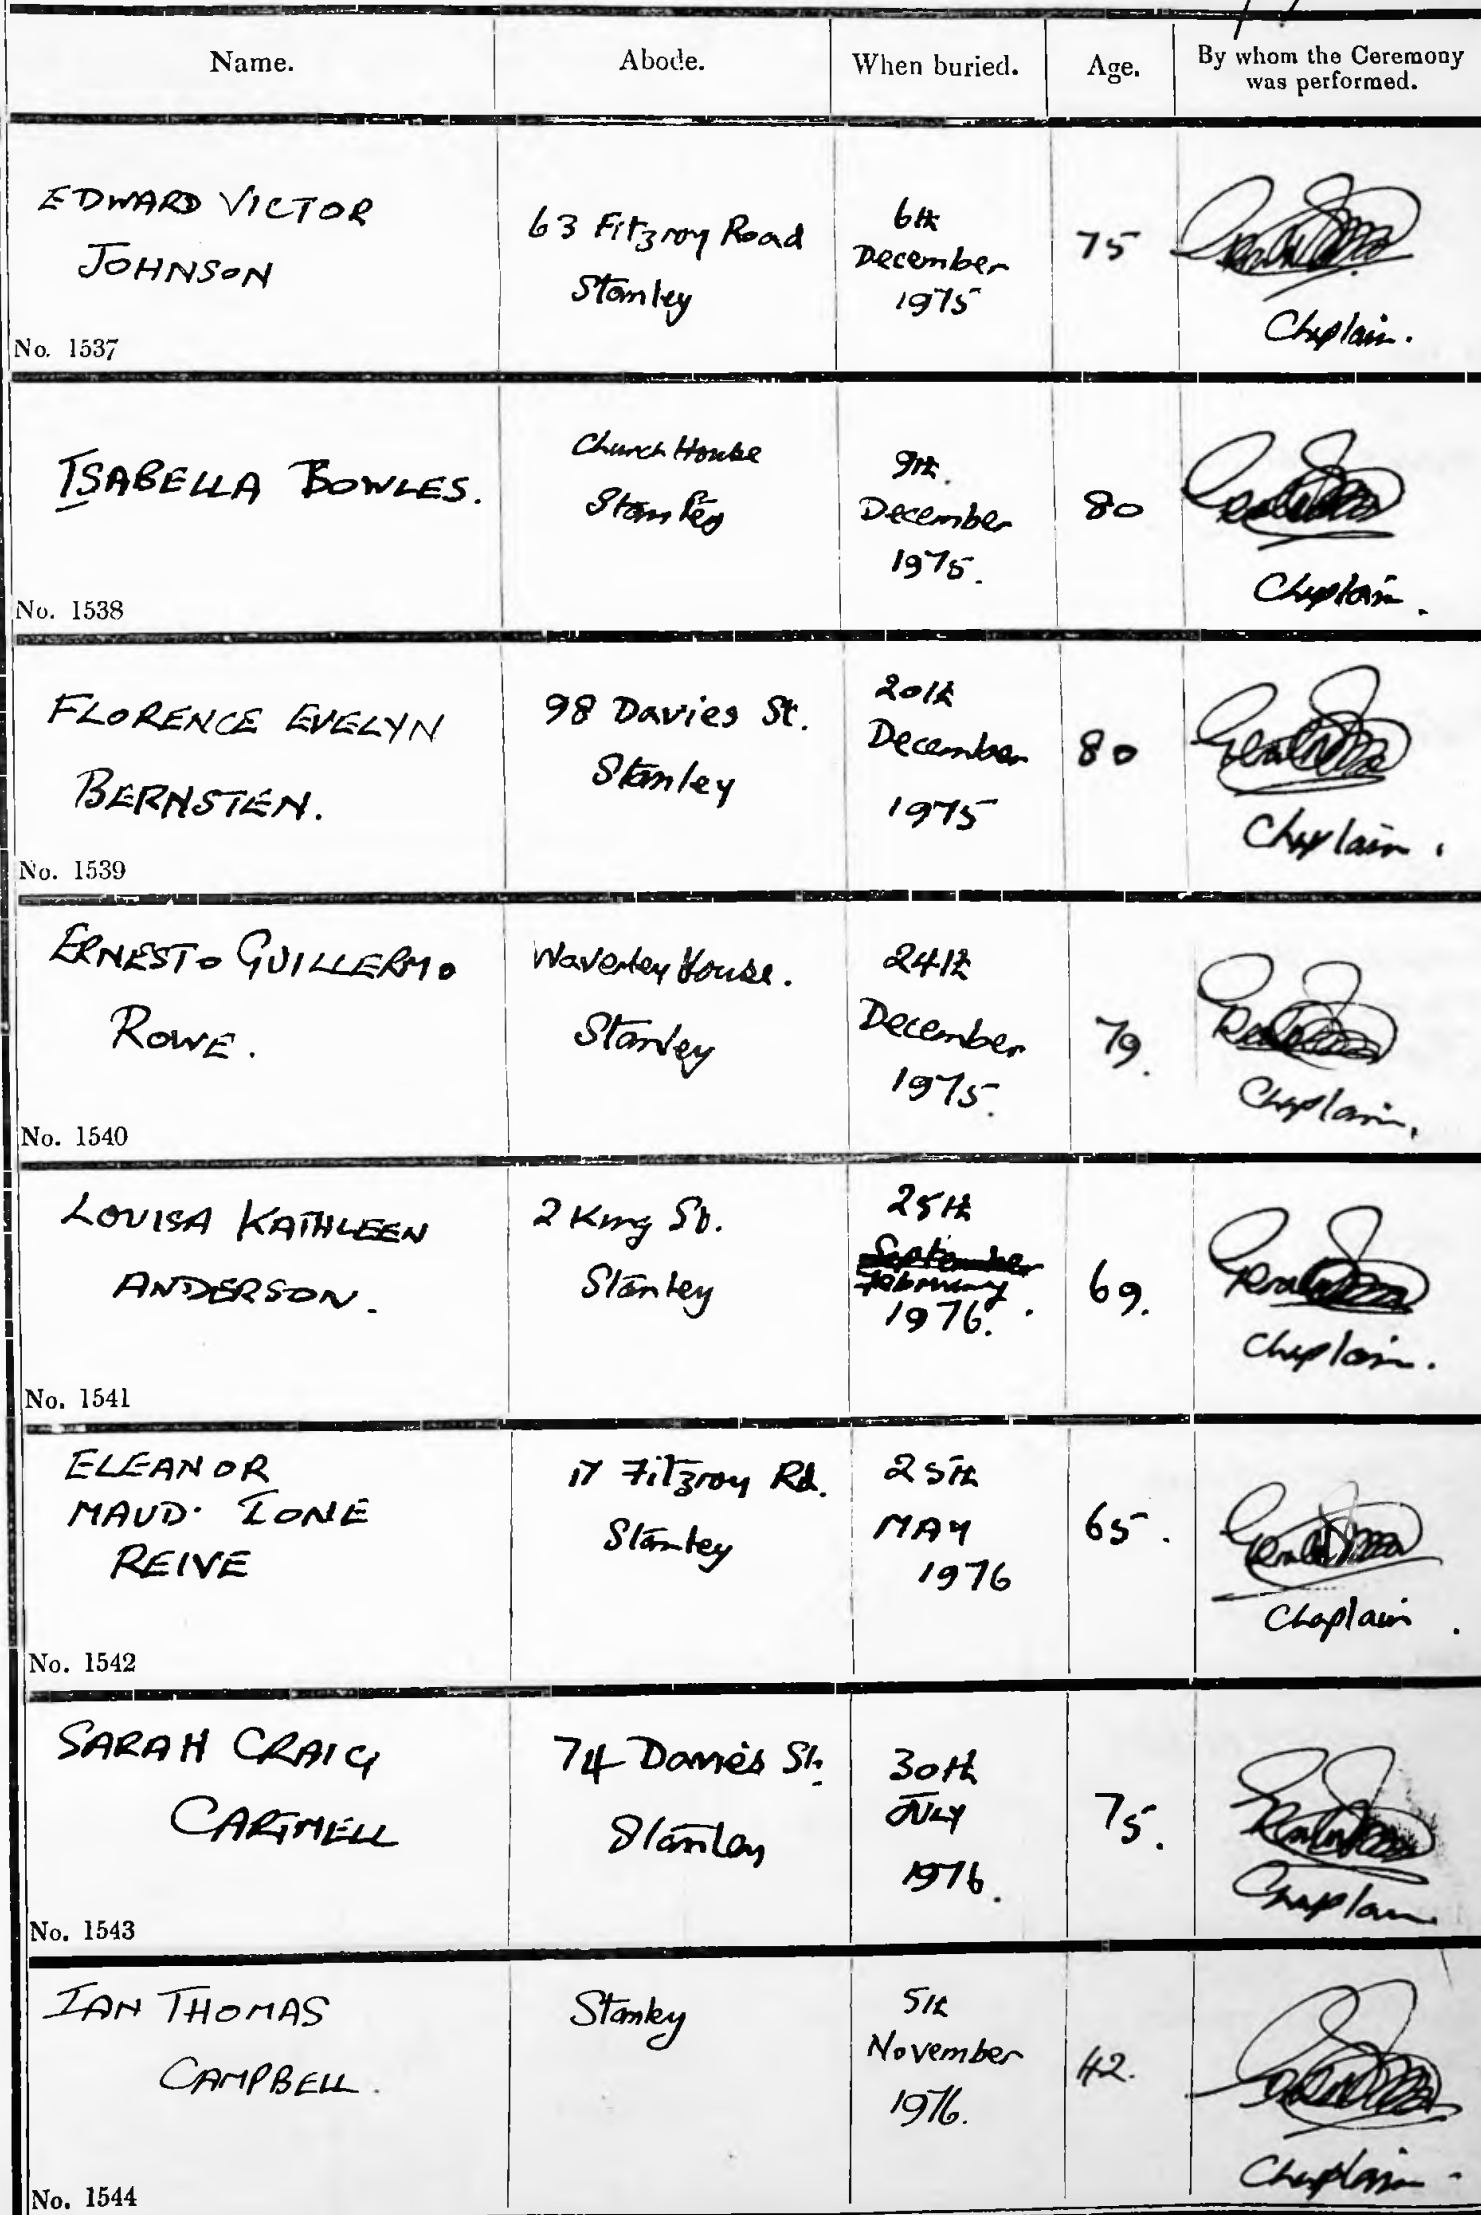 Name. Abode. When buried. Age. By whom the Ceremony was performed.
EDWARD VICTOR
JOHNSON
63 Fitzroy Road
Stanley
6th
December
1975
75
Chaplain.
No. 1537
ISABELLA BOWLES.
Church House
Stanley
9th.
December
1975.
80
Chaplain.
No. 1538
FLORENCE EVELYN
BERNSTEN.
98 Davies St.
Stanley
20th
December
1975
80
Chaplain.
No. 1539
ERNESTO GUILLERMO
ROWE.
Waverley House.
Stanley
24th
December
1975.
79.
Chaplain.
No. 1540
LOUISA KATHLEEN
ANDERSON.
2 King St.
Stanley
25th
September
February
1976.
69.
Chaplain.
No. 1541
ELEANOR
MAUD. IONE
REIVE
17 Fitzroy Rd.
Stanley
25th
MAY
1976
65.
Chaplain.
No. 1542
SARAH CRAIG
CARTMELL
74 Davies St.
Stanley
30th
JULY
1976.
75.
Chaplain
No. 1543
IAN THOMAS
CAMPBELL.
Stanley
5th
November
1976.
42.
Chaplain.
No. 1544